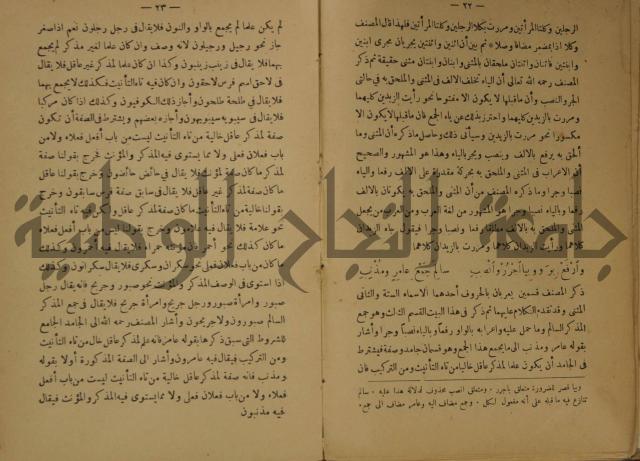 — ٢٢ —
الرجلين وكلتا المرأتين ومررت بكلا الرجلين وكلتا المرأتين فلهذا قال المصنف
وكلا إذا بمضمر مضافا وصلا ثم بين أن اثنين واثنتين يجريان مجرى ابنين
وابنتين فاثنان واثنتان ملحقان بالمثنى وابنان وابنتان مثنى حقيقة ثم ذكر
المصنف رحمه الله تعالى أن الياء تخلف الالف فى المثنى والملحق به فى حالتى
الجر والنصب وأن ماقبلها لا يكون الا مفتوحا نحو رأيت الزيدين كليهما
ومررت بالزيدين كليهما واحترز بذلك عن ياء الجمع فان ماقبلها لا يكون الا
مكسورا نحو مررت بالزيدين وسيأتى ذلك وحاصل ماذكره أن المثنى وما
ألحق به يرفع بالالف وينصب ويجر بالياء وهذا هو المشهور والصحيح
أن الاعراب فى المثنى والملحق به بحركة مقدرة على الالف رفعا والياء
نصبا وجرا وماذكره المصنف من أن المثنى والملحق به يكونان بالالف
رفعا والياء نصبا وجرا هو المشهور من لغة العرب ومن العرب من يجعل
المثنى والملحق به بالالف مطلقا رفعا ونصبا وجرا فيقول جاء الزيدان
كلاهما ورأيت الزيدان كلاهما ومررت بالزيدان كلاهما
وارفع بواو وبيا اجرر وانصب سالم جمع عامر ومذنب
ذكر المصنف قسمين يعربان بالحروف أحدهما الاسماء الستة والثانى
المثنى وقد تقدم الكلام عليهما ثم ذكر فى هذا البيت القسم الثالث وهو جمع
المذكر السالم وما حمل عليه واعرابه بالواو رفعا وبالياء نصبا وجرا وأشار
بقوله عامر ومذنب الى مايجمع هذا الجمع وهو قسمان جامد وصفة فيشترط
فى الجامد أن يكون علما لمذكر عاقل خاليا من تاء التأنيث ومن التركيب فان
وبيا قصر للضرورة متعلق باجرر . ومتعلق انصب محذوف لدلالة هذا عليه . سالم
تنازع فيه ماقبله على أنه مفعول لكل . وجمع مضاف اليه وعامر مضاف الى جمع .
— ٢٣ —
لم يكن علما لم يجمع بالواو والنون فلا يقال فى رجل رجلون نعم اذا صغر
جاز نحو رجيل ورجيلون لانه وصف وان كان علما لغير مذكر لم يجمع
بهما فلا يقال فى زينب زينبون وكذا ان كان علما لمذكر غير عاقل فلا يقال
فى لاحق اسم فرس لاحقون وان كان فيه تاء التأنيث فكذلك لا يجمع بهما
فلا يقال فى طلحة طلحون وأجاز ذلك الكوفيون وكذلك اذا كان مركبا
فلا يقال فى سيبويه سيبويهون وأجازه بعضهم ويشترط فى الصفة أن تكون
صفة لمذكر عاقل خالية من تاء التأنيث ليست من باب أفعل فعلاء ولا من
باب فعلان فعلى ولا مما يستوى فيه المذكر والمؤنث فخرج بقولنا صفة
لمذكر ما كان صفة لمؤنث فلا يقال فى حائض حائضون وخرج بقولنا عاقل
ما كان صفة لمذكر غير عاقل فلا يقال فى سابق صفة فرس سابقون وخرج
بقولنا خالية من تاء التأنيث ما كان صفة لمذكر عاقل ولكن فيه تاء التأنيث
نحو علامة فلا يقال فيه علامون وخرج بقولنا ليست من باب أفعل فعلاء
ما كان كذلك نحو أحمر فان مؤنثه حمراء فلا يقال فيه أحمرون وكذلك
ما كان من باب فعلان فعلى نحو سكران وسكرى فلا يقال سكرانون وكذلك
اذا استوى فى الوصف المذكر والمؤنث نحو صبور وجريح فانه يقال رجل
صبور وامرأة صبور ورجل جريح وامرأة جريح فلا يقال فى جمع المذكر
السالم صبورون ولا جريحون وأشار المصنف رحمه الله الى الجامد الجامع
للشروط التى سبق ذكرها بقوله عامر فانه علم لمذكر عاقل خال من تاء التأنيث
ومن التركيب فيقال فيه عامرون وأشار الى الصفة المذكورة أولا بقوله
ومذنب فانه صفة لمذكر عاقل خالية من تاء التأنيث ليست من باب أفعل
فعلاء ولا من باب فعلان فعلى ولا مما يستوى فيه المذكر والمؤنث فيقال
فيه مذنبون
جامعة النجاح الوطنية